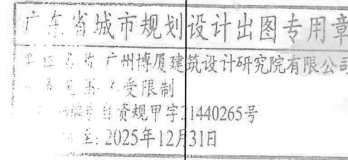 广东省城市规划设计出图专用章
单位名称 广州博厦建筑设计研究院有限公司
不受限制
编号 自资规甲字21440265号
至: 2025年12月31日